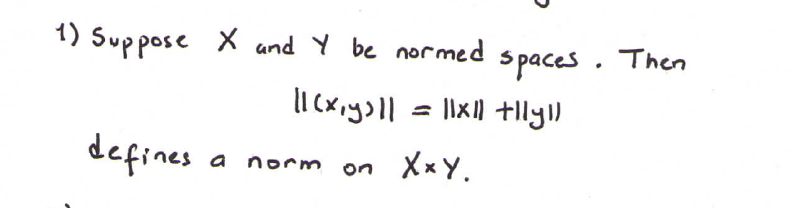 1) Suppose X and Y be normed spaces. Then
||(x,y)|| = ||x|| + ||y||
defines a norm on X×Y.